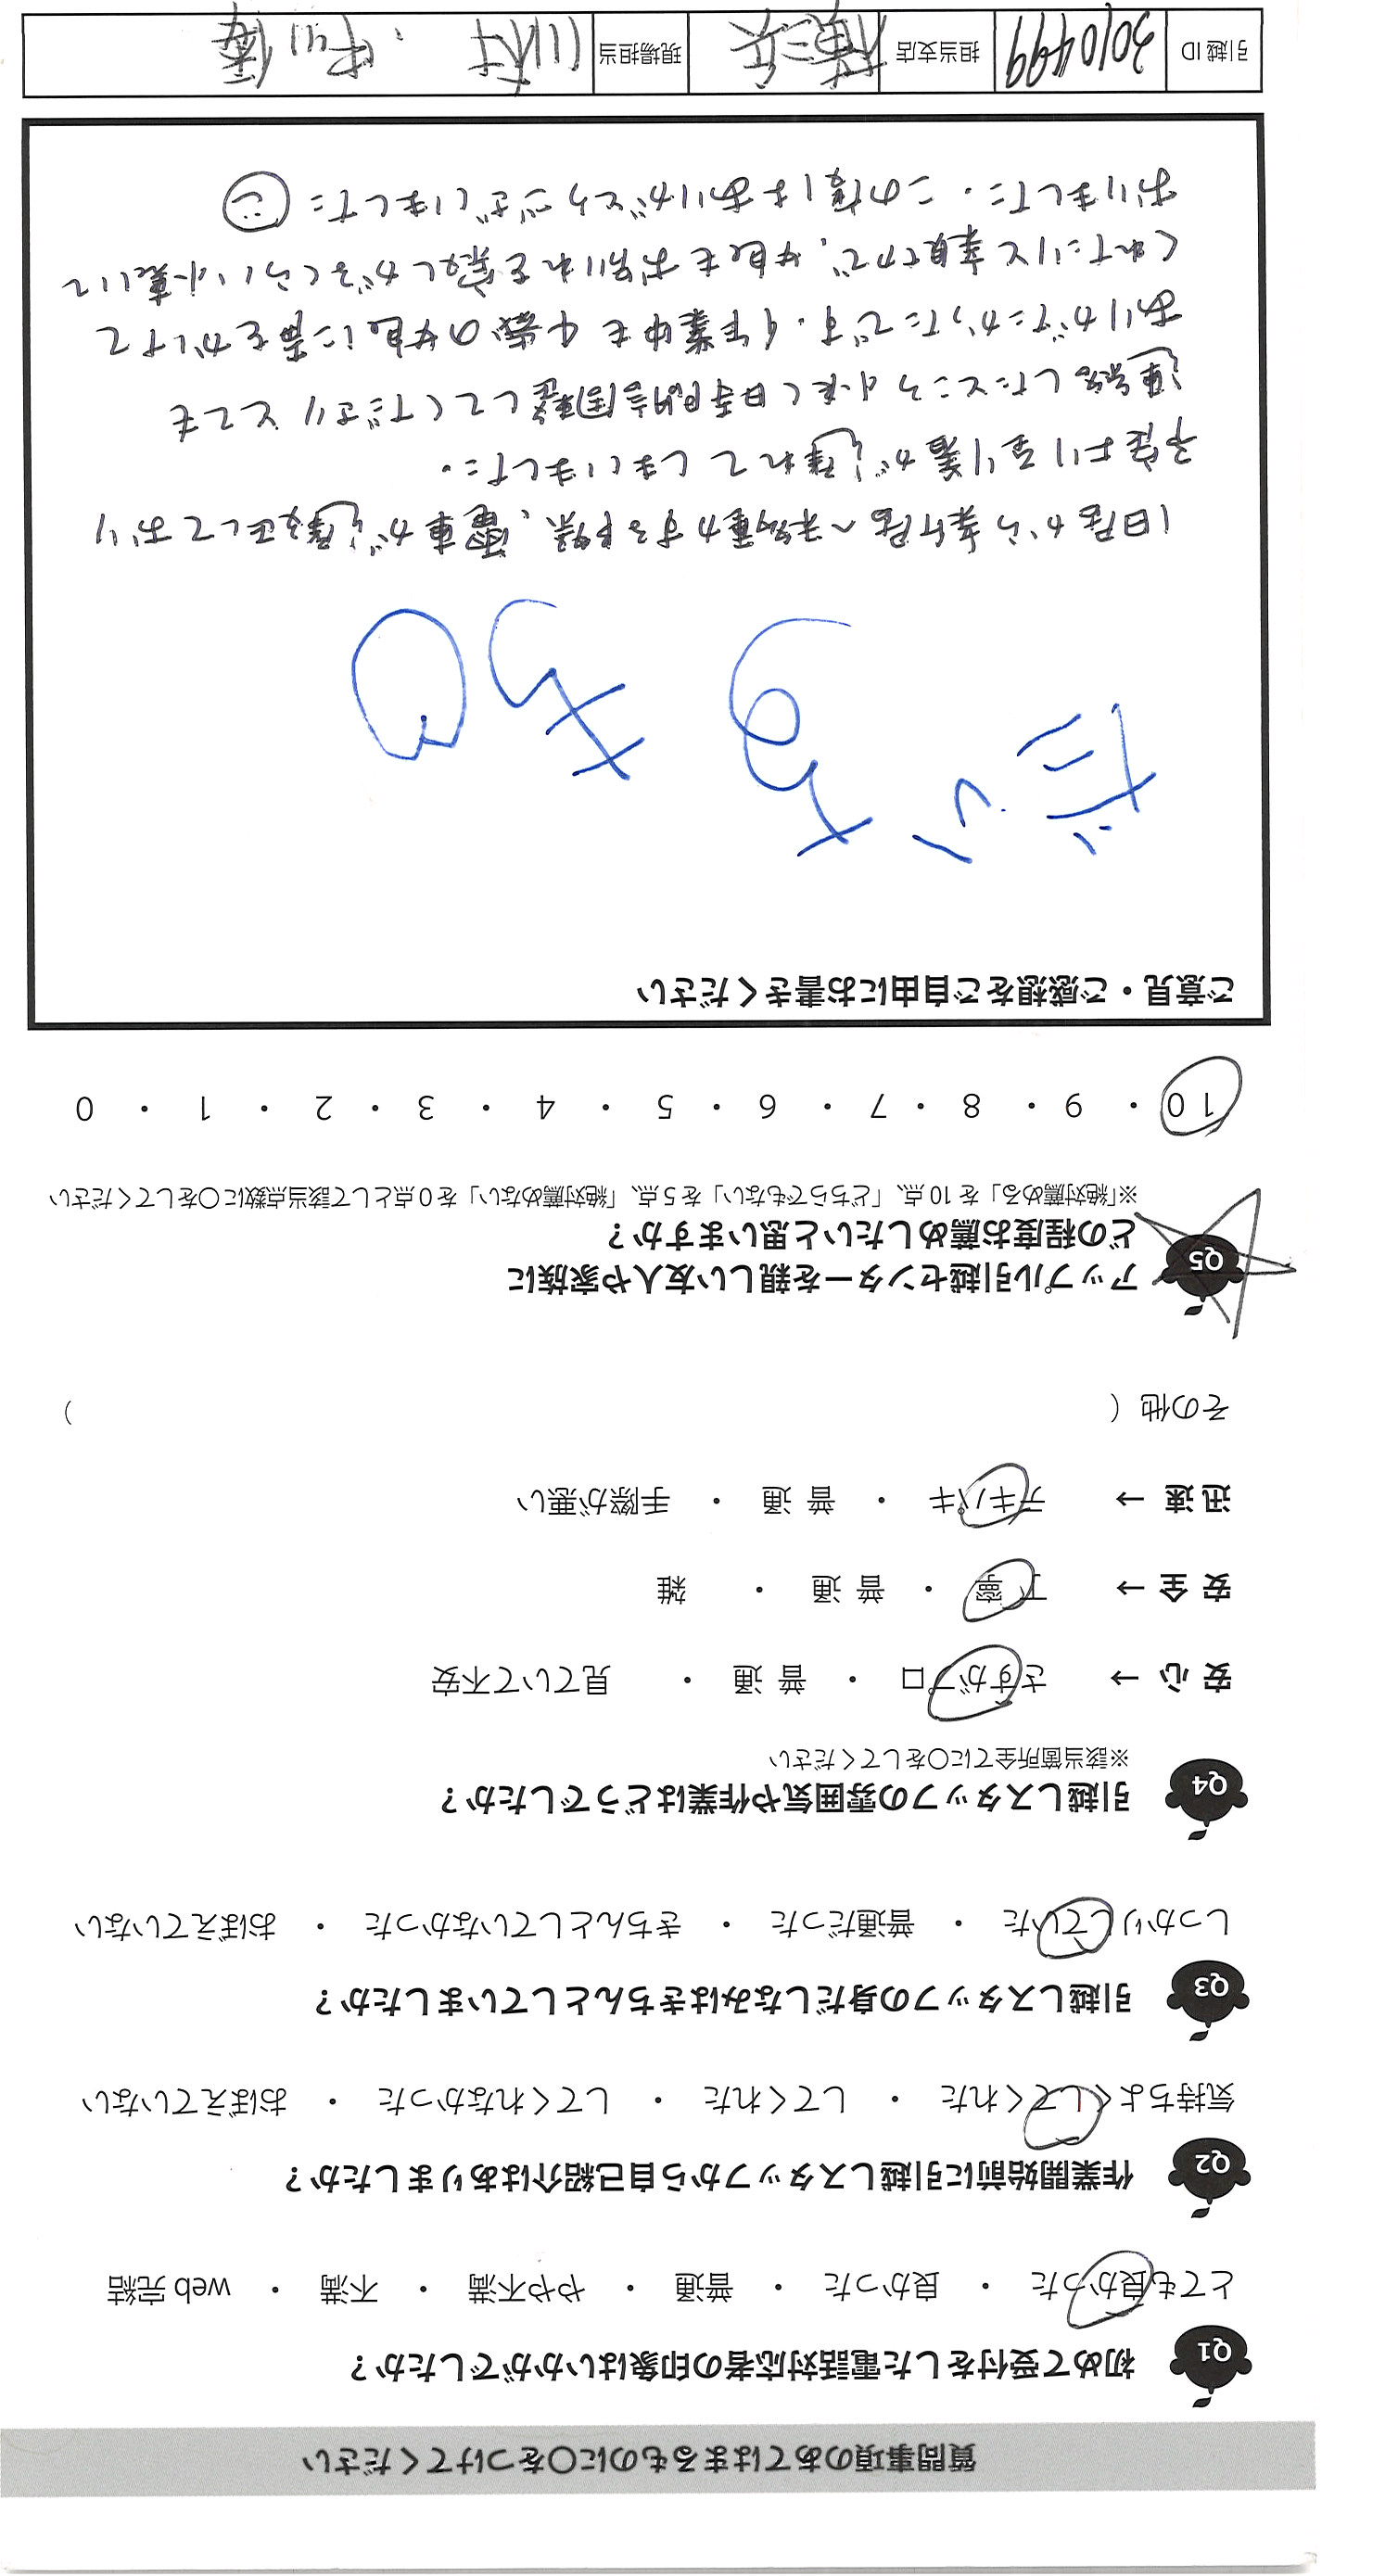 質問事項のあてはまるものに○をつけてください
Q1 初めて受付をした電話対応者の印象はいかがでしたか？
とても良かった ・ 良かった ・ 普通 ・ やや不満 ・ 不満 ・ web 完結
Q2 作業開始前に引越しスタッフから自己紹介はありましたか？
気持ちよくしてくれた ・ してくれた ・ してくれなかった ・ おぼえていない
Q3 引越しスタッフの身だしなみはきちんとしていましたか？
しっかりしていた ・ 普通だった ・ きちんとしていなかった ・ おぼえていない
Q4 引越しスタッフの雰囲気や作業はどうでしたか？
※該当箇所全てに○をしてください
安 心 → さすがプロ ・ 普 通 ・ 見ていて不安
安 全 → 丁 寧 ・ 普 通 ・ 雑
迅 速 → テキパキ ・ 普 通 ・ 手際が悪い
その他（ ）
Q5 アップル引越センターを親しい友人や家族に
どの程度お薦めしたいと思いますか？
※「絶対薦める」を 10 点、「どちらでもない」を 5 点、「絶対薦めない」を 0 点として該当点数に○をしてください
10 ・ 9 ・ 8 ・ 7 ・ 6 ・ 5 ・ 4 ・ 3 ・ 2 ・ 1 ・ 0
ご意見・ご感想をご自由にお書きください
旧居から新居へ移動する際、電車が遅延しており
予定より到着が遅れてしまいました。
連絡したところ快く時間調整してくださりとても
ありがたかったです。作業中も4歳の娘に声をかけて
くれたりと素敵で、娘もお別れを寂しがるくらい懐いて
おりました。この度はありがとうございました
引越 ID 3010499 担当支店 現場担当